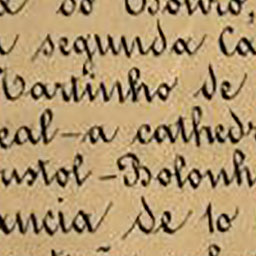 do Douro,
a segunda Ca
Martinho de
eal-a cathedr
ustol-Bolonh
ancia de 10